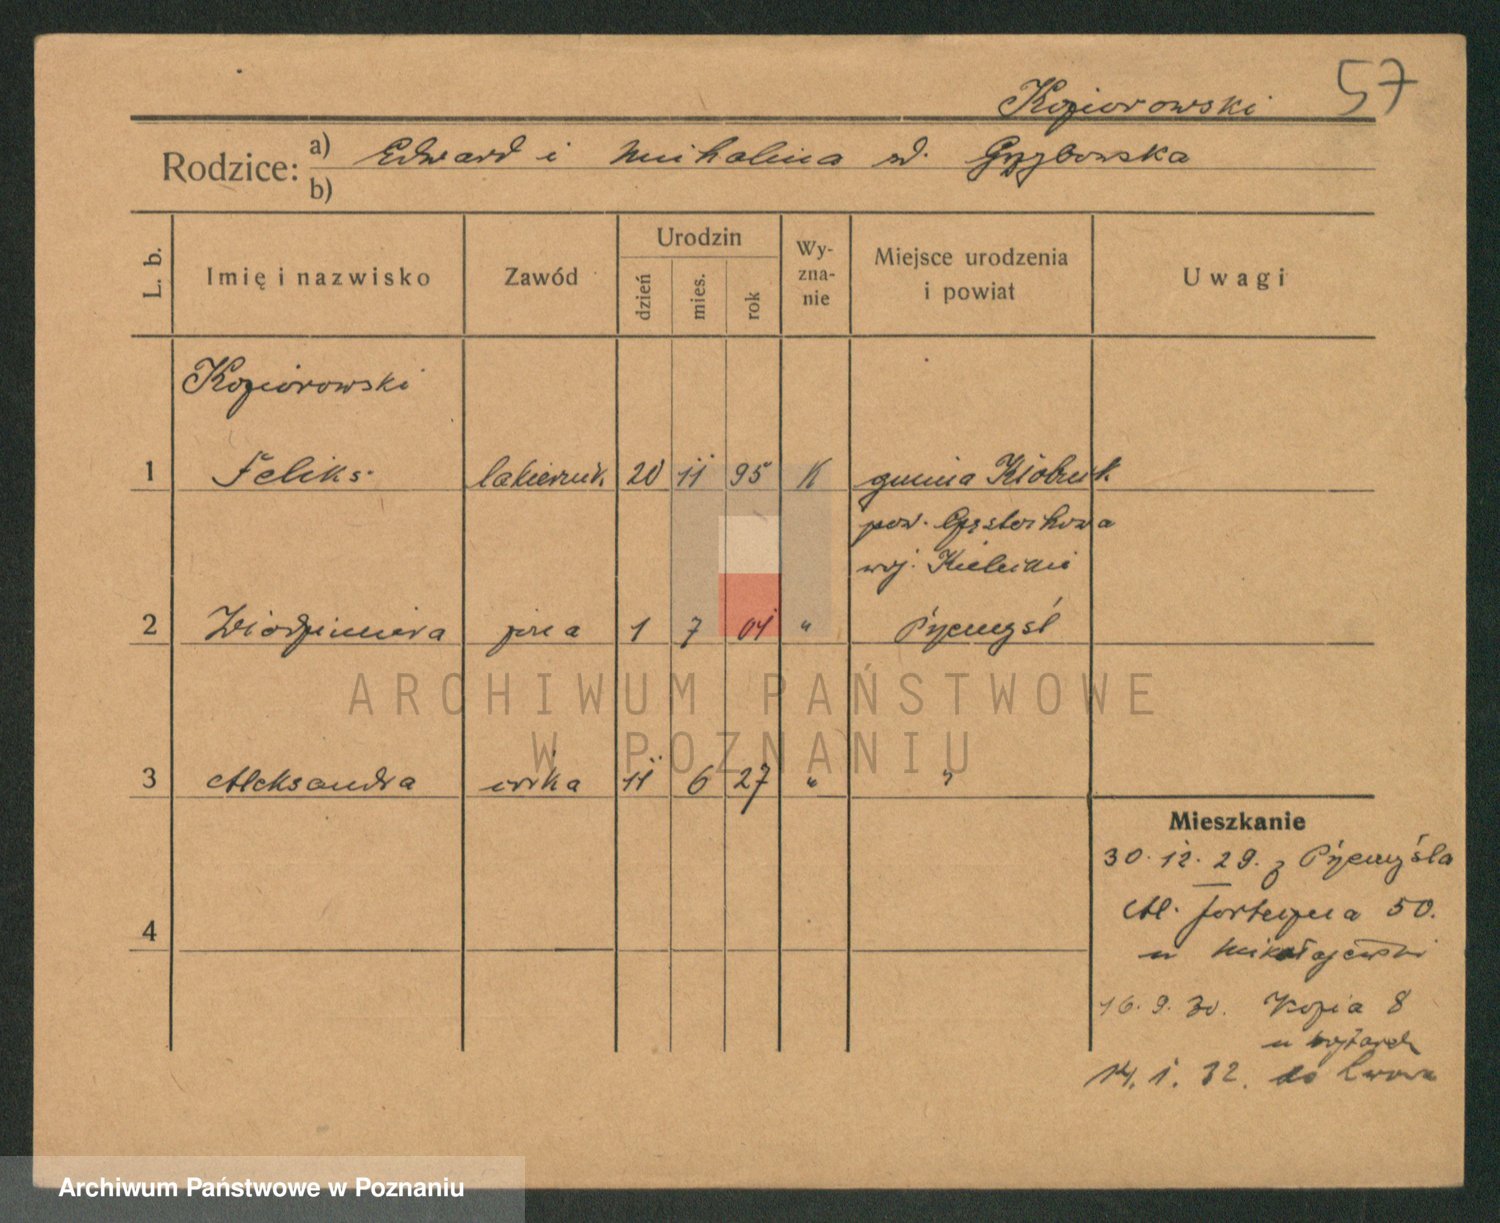 57
Koziorowski
Rodzice: a) Edward i Michalina zd. Grzybowska
b)
L. b. Imię i nazwisko Zawód Urodzin dzień mies. rok Wy-zna-nie Miejsce urodzenia i powiat Uwagi
Koziorowski
1 Feliks lakiernik 20 11 95 K gmina Kłobuck
pow. Częstochowa
woj. Kieleckie
2 Włodzimiera żona 1 7 04 " Przemyśl
ARCHIWUM PAŃSTWOWE
W POZNANIU
3 Aleksandra córka 11 6 27 " "
Mieszkanie
30. 12. 29. z Przemyśla
4
50.
u Mikołajewski
16. 9. 30. Kozia 8
u
14. 1. 32. do Lwowa
Archiwum Państwowe w Poznaniu